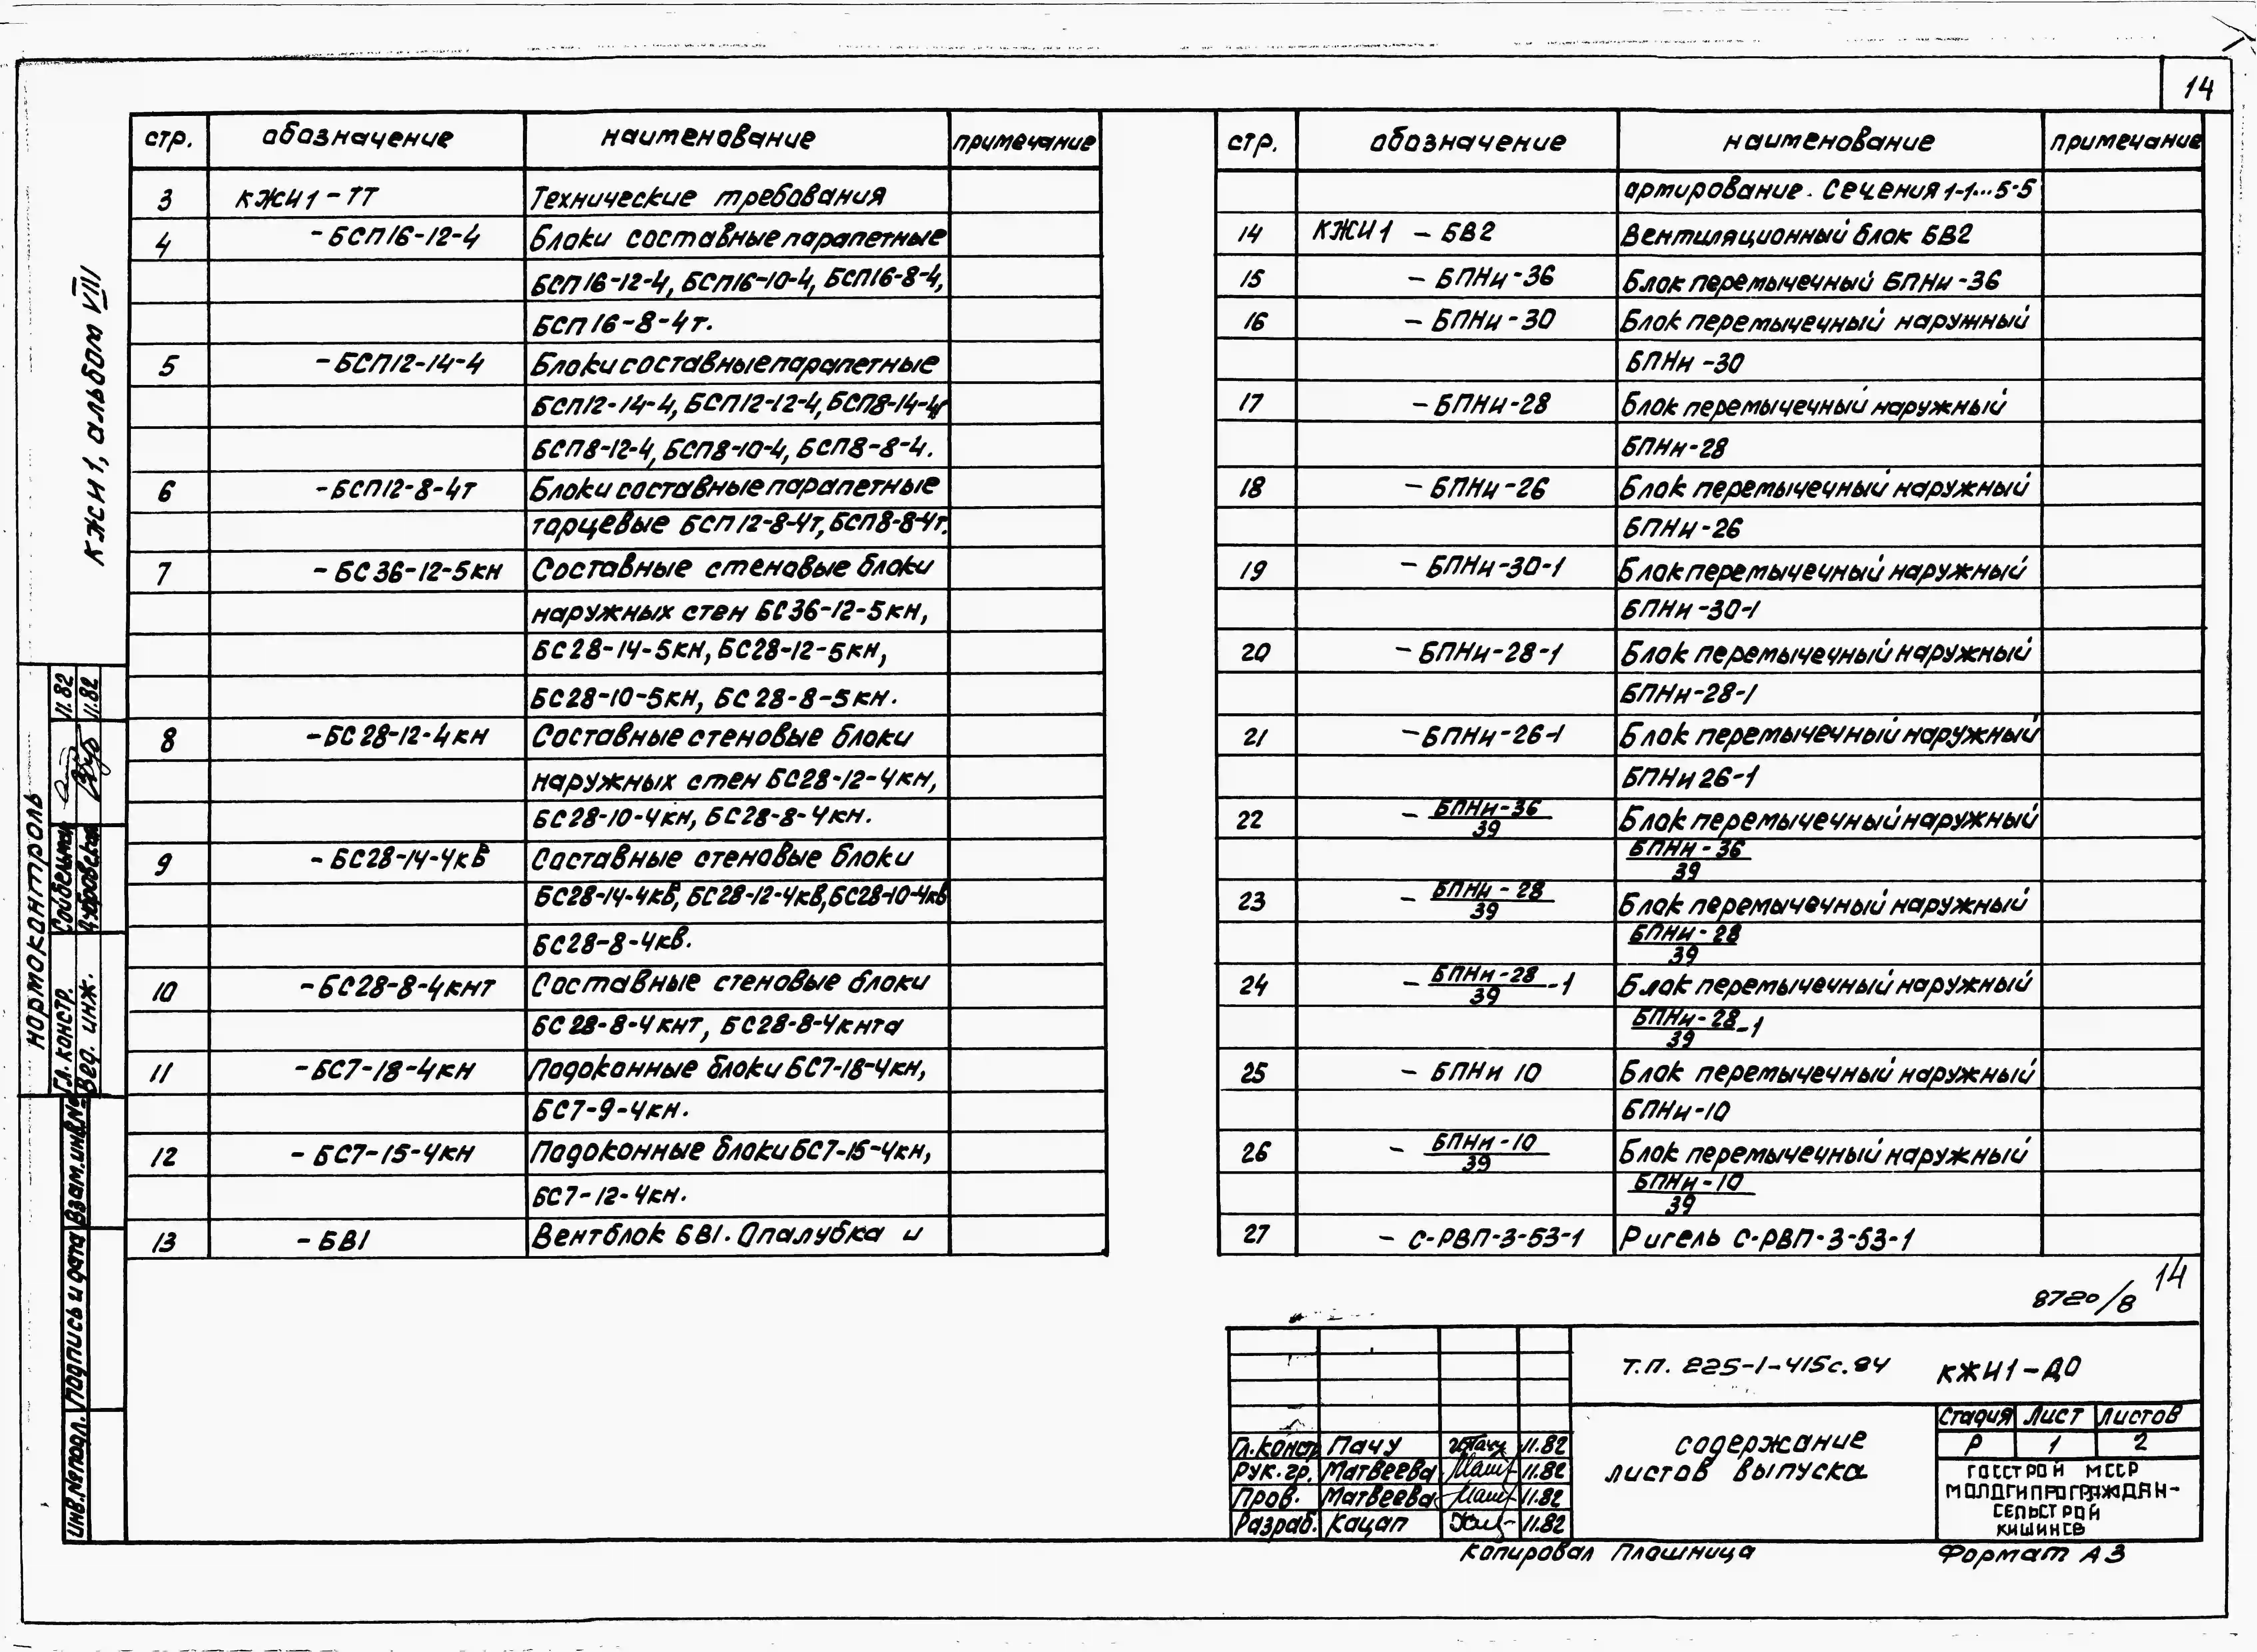 14
КЖИ1, альбом VIII
стр. обозначение наименование примечание
3 КЖИ1-ТТ Технические требования
4 -БСП16-12-4 Блоки составные парапетные
БСП16-12-4, БСП16-10-4, БСП16-8-4,
БСП16-8-4т.
5 -БСП12-14-4 Блоки составные парапетные
БСП12-14-4, БСП12-12-4, БСП8-14-4,
БСП8-12-4, БСП8-10-4, БСП8-8-4.
6 -БСП12-8-4т Блоки составные парапетные
торцевые БСП12-8-4т, БСП8-8-4т.
7 -БС36-12-5кн Составные стеновые блоки
наружных стен БС36-12-5кн,
БС28-14-5кн, БС28-12-5кн,
БС28-10-5кн, БС28-8-5кн.
8 -БС28-12-4кн Составные стеновые блоки
наружных стен БС28-12-4кн,
БС28-10-4кн, БС28-8-4кн.
9 -БС28-14-4кв Составные стеновые блоки
БС28-14-4кв, БС28-12-4кв, БС28-10-4кв
БС28-8-4кв.
10 -БС28-8-4кнт Составные стеновые блоки
БС28-8-4кнт, БС28-8-4кнта
11 -БС7-18-4кн Подоконные блоки БС7-18-4кн,
БС7-9-4кн.
12 -БС7-15-4кн Подоконные блоки БС7-15-4кн,
БС7-12-4кн.
13 -БВ1 Вентблок БВ1. Опалубка и
стр. обозначение наименование примечание
армирование. Сечения 1-1...5-5
14 КЖИ1 -БВ2 Вентиляционный блок БВ2
15 -БПНи-36 Блок перемычечный БПНи-36
16 -БПНи-30 Блок перемычечный наружный
БПНи-30
17 -БПНи-28 Блок перемычечный наружный
БПНи-28
18 -БПНи-26 Блок перемычечный наружный
БПНи-26
19 -БПНи-30-1 Блок перемычечный наружный
БПНи-30-1
20 -БПНи-28-1 Блок перемычечный наружный
БПНи-28-1
21 -БПНи-26-1 Блок перемычечный наружный
БПНи26-1
22 - БПНи-36/39 Блок перемычечный наружный
БПНи-36/39
23 - БПНи-28/39 Блок перемычечный наружный
БПНи-28/39
24 - БПНи-28/39-1 Блок перемычечный наружный
БПНи-28/39-1
25 - БПНи 10 Блок перемычечный наружный
БПНи-10
26 - БПНи-10/39 Блок перемычечный наружный
БПНи-10/39
27 - С-РВП-3-53-1 Ригель С-РВП-3-53-1
нормоконтроль
Гл. констр. Сойбельман 11.82
Вед. инж. Дубровская 11.82
Инв.№подл. Подпись и дата Взам.инв.№
8720/8 14
Т.П. 225-1-415с.84 КЖИ1-ДО
содержание
листов выпуска
Стадия Лист Листов
Р 1 2
Госстрой МССР
Молдгипрограждан-
сельстрой
Кишинев
Гл.констр Пачу 11.82
Рук.гр. Матвеева 11.82
Пров. Матвеева 11.82
Разраб. Кацап 11.82
Копировал Плошница Формат А3